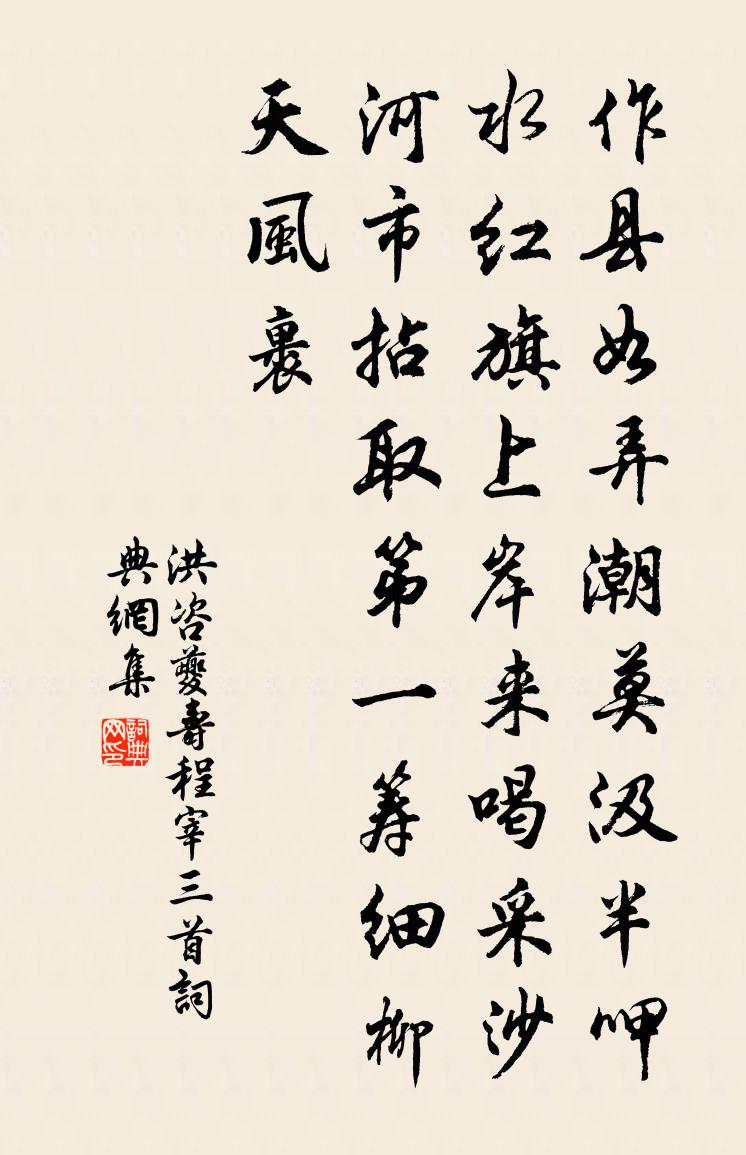 作县如弄潮莫汲半呷
水红旗上岸来喝采沙
河市拈取第一筹细柳
天風裏
洪咨夔壽程宰三首詞
典網集
詞典網印